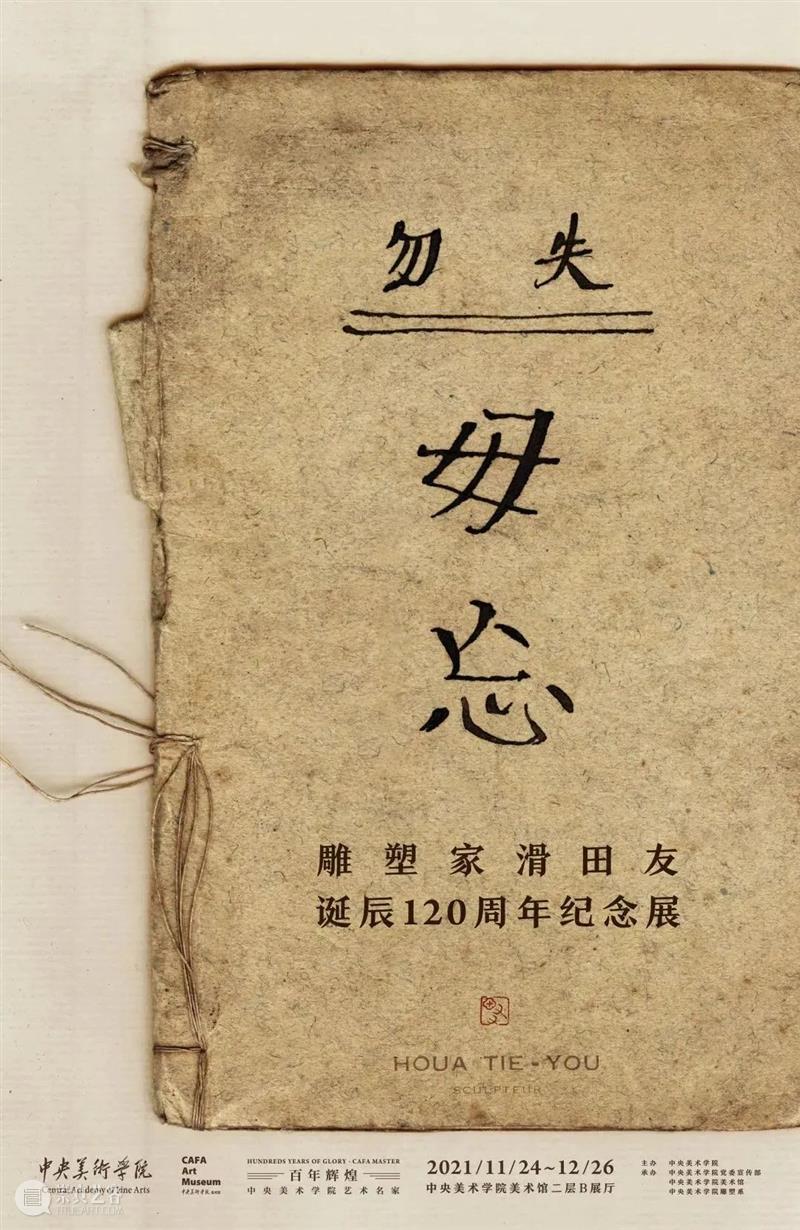 勿 失
毋
忘
雕塑家滑田友
诞辰120周年纪念展
HOUA TIE-YOU
SCULPTEUR
中央美術学院
Central Academy of Fine Arts
CAFA
Art
Museum
中央美术学院 美术馆
HUNDREDS YEARS OF GLORY · CAFA MASTER
百年辉煌
中央美术学院艺术名家
2021/11/24~12/26
中央美术学院美术馆二层B展厅
主办 中央美术学院
承办 中央美术学院党委宣传部
中央美术学院美术馆
中央美术学院雕塑系